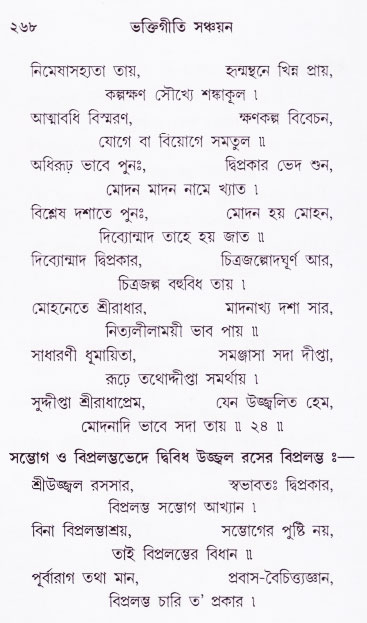 ২৬৮ ভক্তিগীতি সঞ্চয়ন
নিমেষাসহ্যতা তায়, হৃন্মন্থনে খিন্ন প্রায়,
কল্পক্ষণ সৌখ্যে শঙ্কাকূল ।
আত্মাবধি বিস্মরণ, ক্ষণকল্প বিবেচন,
যোগে বা বিয়োগে সমতুল ॥
অধিরূঢ় ভাবে পুনঃ, দ্বিপ্রকার ভেদ শুন,
মোদন মাদন নামে খ্যাত ।
বিশ্লেষ দশাতে পুনঃ, মোদন হয় মোহন,
দিব্যোন্মাদ তাহে হয় জাত ॥
দিব্যোন্মাদ দ্বিপ্রকার, চিত্রজল্পোদঘূর্ণ আর,
চিত্রজল্প বহুবিধ তায় ।
মোহনেতে শ্রীরাধার, মাদনাখ্য দশা সার,
নিত্যলীলাময়ী ভাব পায় ॥
সাধারণী ধূমায়িতা, সমঞ্জাসা সদা দীপ্তা,
রূঢ়ে তথোদ্দীপ্তা সমর্থায় ।
সুদ্দীপ্তা শ্রীরাধাপ্রেম, যেন উজ্জ্বলিত হেম,
মোদনাদি ভাবে সদা তায় ॥ ২৪ ॥
সম্ভোগ ও বিপ্রলম্ভভেদে দ্বিবিধ উজ্জ্বল রসের বিপ্রলম্ভ ঃ—
শ্রীউজ্জ্বল রসসার, স্বভাবতঃ দ্বিপ্রকার,
বিপ্রলম্ভ সম্ভোগ আখ্যান ।
বিনা বিপ্রলম্ভাশ্রয়, সম্ভোগের পুষ্টি নয়,
তাই বিপ্রলম্ভের বিধান ॥
পূর্বারাগ তথা মান, প্রবাস-বৈচিত্ত্যজ্ঞান,
বিপ্রলম্ভ চারি ত' প্রকার ।